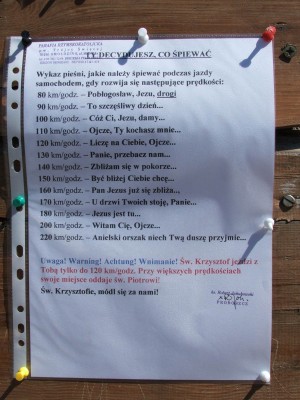 PARAFIA RZYMSKOKATOLICKA
TY DECYDUJESZ, CO ŚPIEWAĆ
Wykaz pieśni, jakie należy śpiewać podczas jazdy
samochodem, gdy rozwija się następujące prędkości:
80 km/godz. – Pobłogosław, Jezu, drogi
90 km/godz. – To szczęśliwy dzień...
100 km/godz. – Cóż Ci, Jezu, damy...
110 km/godz. – Ojcze, Ty kochasz mnie...
120 km/godz. – Liczę na Ciebie, Ojcze...
130 km/godz. – Panie, przebacz nam...
140 km/godz. – Zbliżam się w pokorze...
150 km/godz. – Być bliżej Ciebie chcę...
160 km/godz. – Pan Jezus już się zbliża...
170 km/godz. – U drzwi Twoich stoję, Panie...
180 km/godz. – Jezus jest tu...
200 km/godz. – Witam Cię, Ojcze...
220 km/godz. – Anielski orszak niech Twą duszę przyjmie...
Uwaga! Warning! Achtung! Wnimanie! Św. Krzysztof jeździ z
Tobą tylko do 120 km/godz. Przy większych prędkościach
swoje miejsce oddaje św. Piotrowi!
Św. Krzysztofie, módl się za nami!
PROBOSZCZ